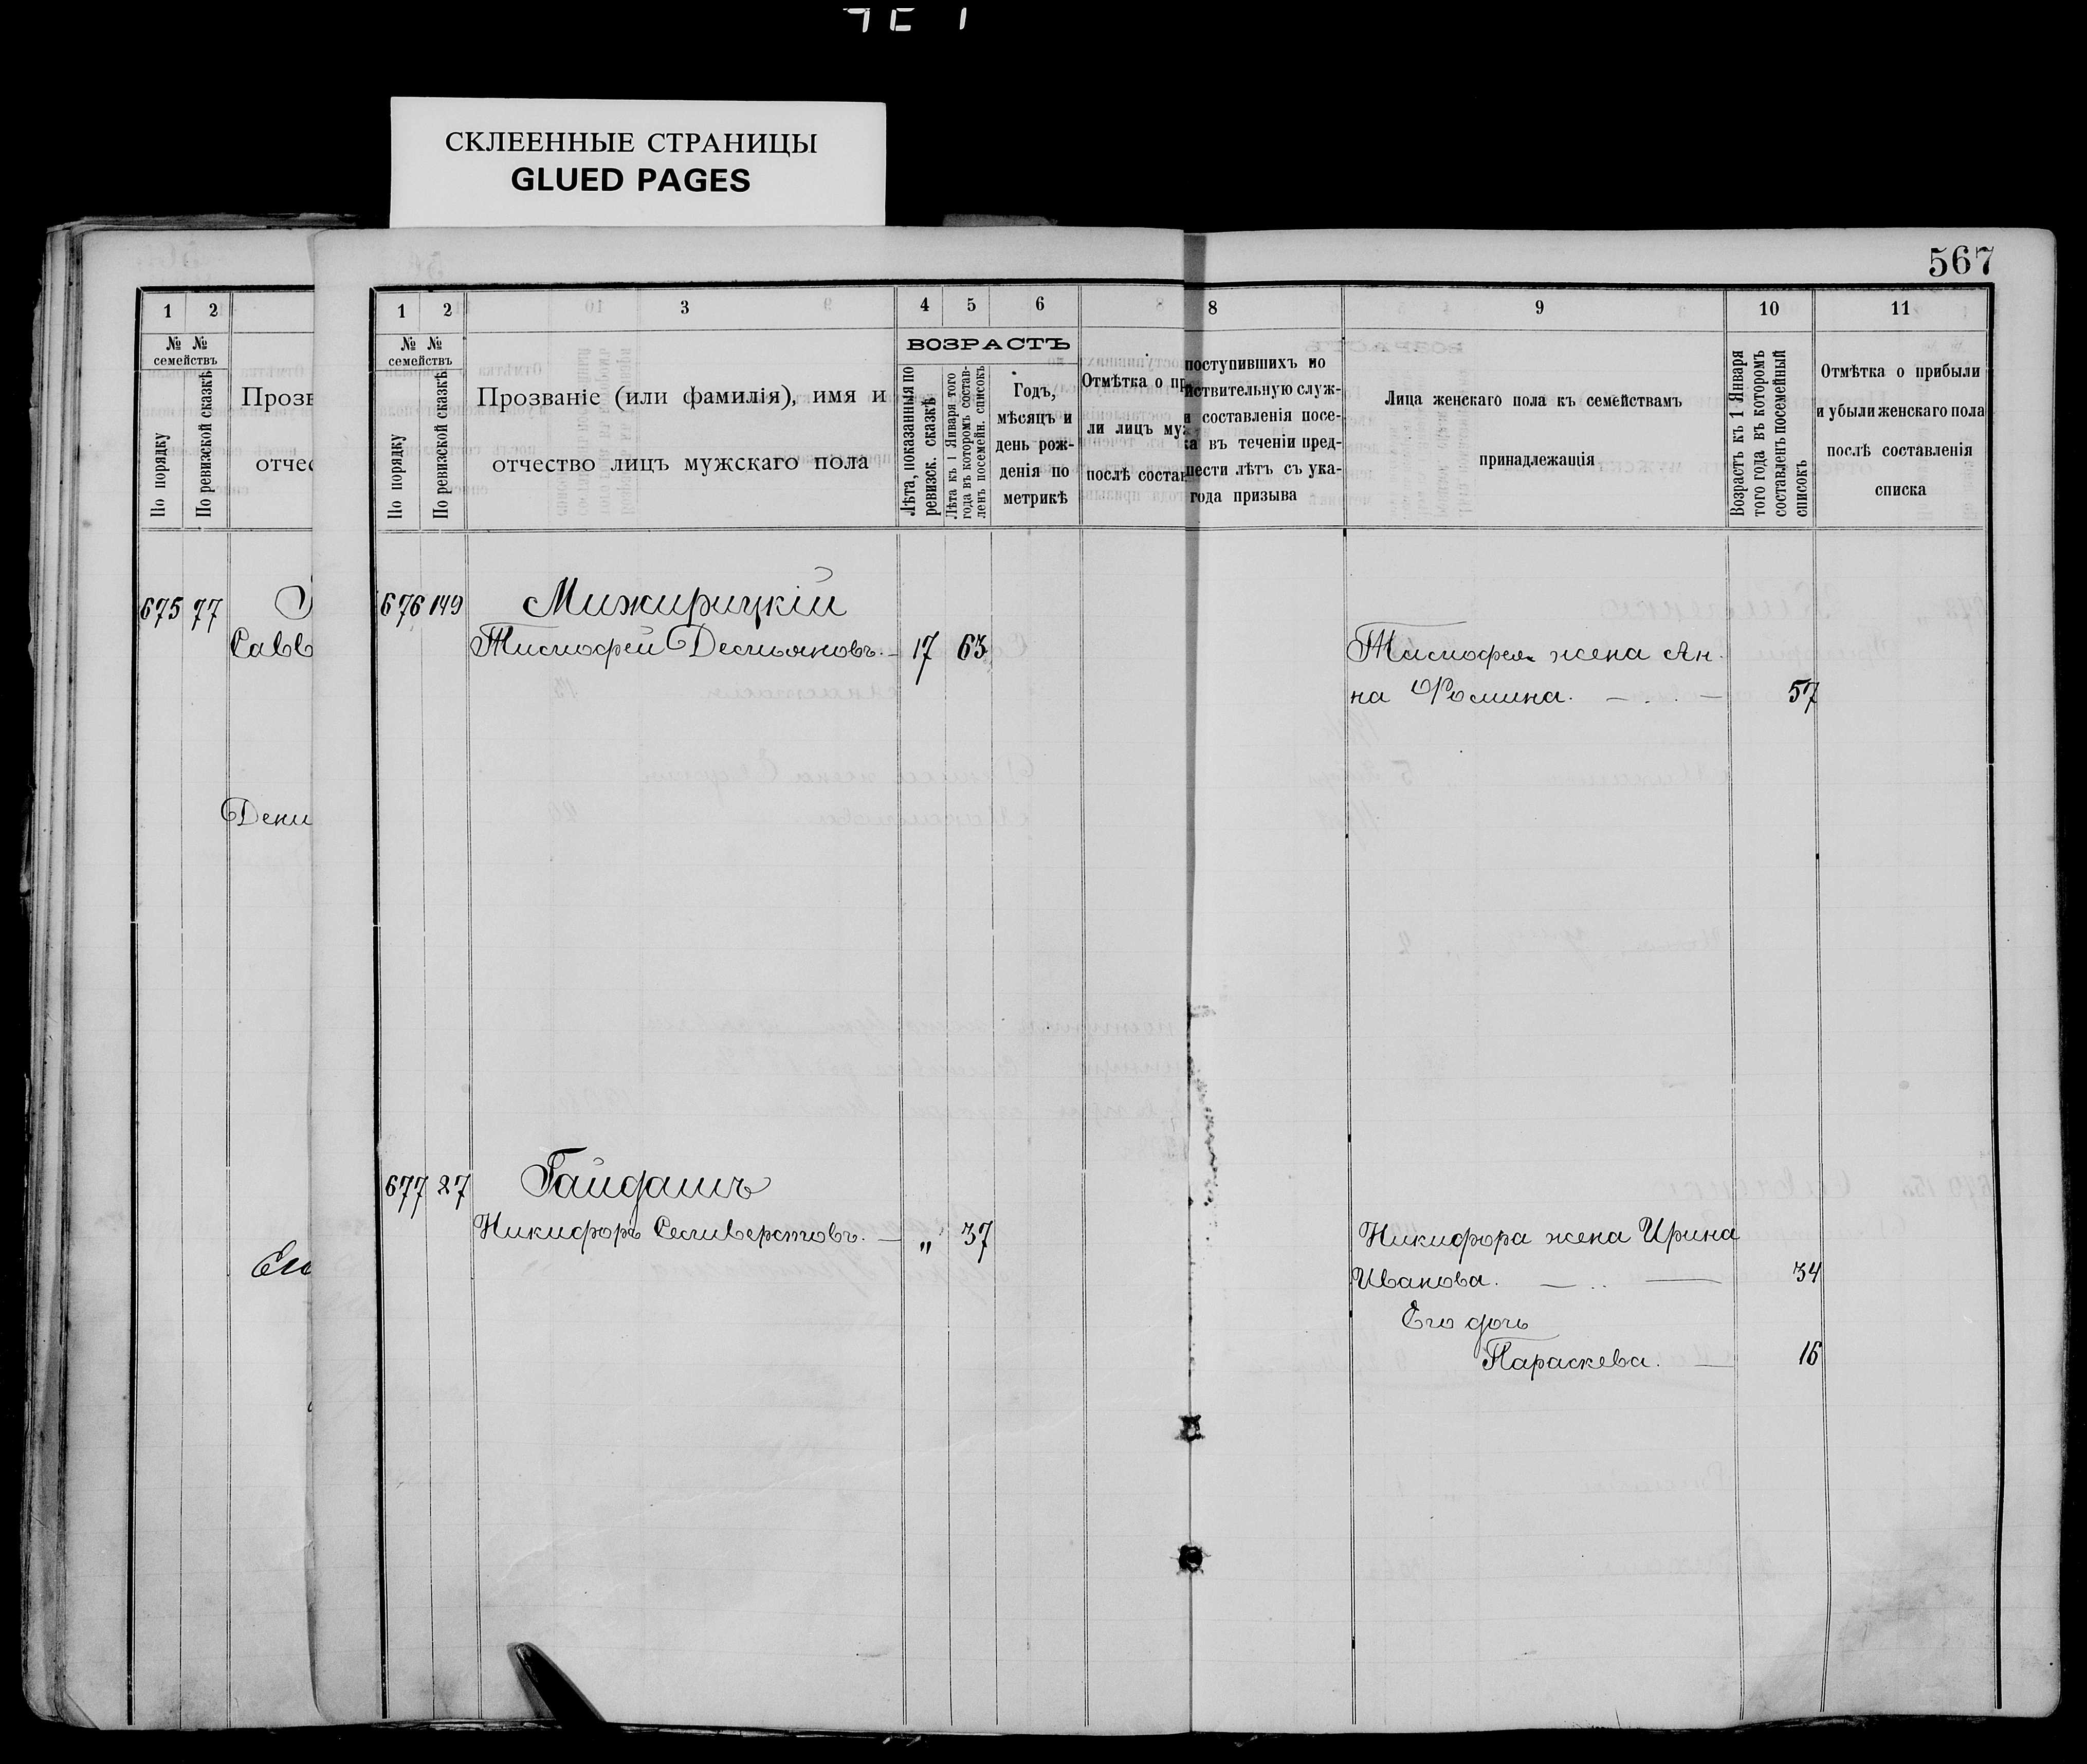 СКЛЕЕННЫЕ СТРАНИЦЫ
GLUED PAGES
567
1 2
№ № семействъ
По порядку
По ревизской сказкѣ
675 77
Савв
Дени
1 2 3 4 5 6 8 9 10 11
№ № семействъ
По порядку
По ревизской сказкѣ
Прозваніе (или фамилія), имя и
отчество лицъ мужскаго пола
ВОЗРАСТЪ
Лѣта, показанныя по
ревизск. сказкѣ
Лѣта къ 1 Января того
года въ которомъ состав-
ленъ посемейн. списокъ
Годъ,
мѣсяцъ и
день рож-
денія по
метрикѣ
Отмѣтка о пр
ли лицъ му
послѣ состав
поступившихъ по
йствительную служ-
и составленія посе-
ка въ теченіи пред-
шести лѣтъ съ ука-
года призыва
Лица женскаго пола къ семействамъ
принадлежащія
Возрастъ къ 1 Января
того года въ которомъ
составленъ посемейный
списокъ
Отмѣтка о прибыли
и убыли женскаго пола
послѣ составленія
списка
676 149 Мижирицкій
Тимофей Демьяновъ. 17 63 Тимофея жена Ан-
на Фомина. 57
677 27 Гайдашъ
Никифоръ Селиверстовъ. — „ 37 Никифора жена Ирина
Иванова. 34
Его дочь
Параскева. — 16